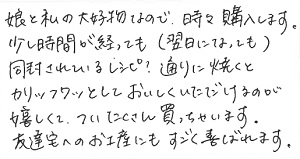 娘と私の大好物なので、時々購入します。
少し時間が経っても(翌日になっても)
同封されているレシピ?通りに焼くと
カリッフワッとしておいしくいただけるのが
嬉しくて、ついたくさん買っちゃいます。
友達宅へのお土産にもすごく喜ばれます。